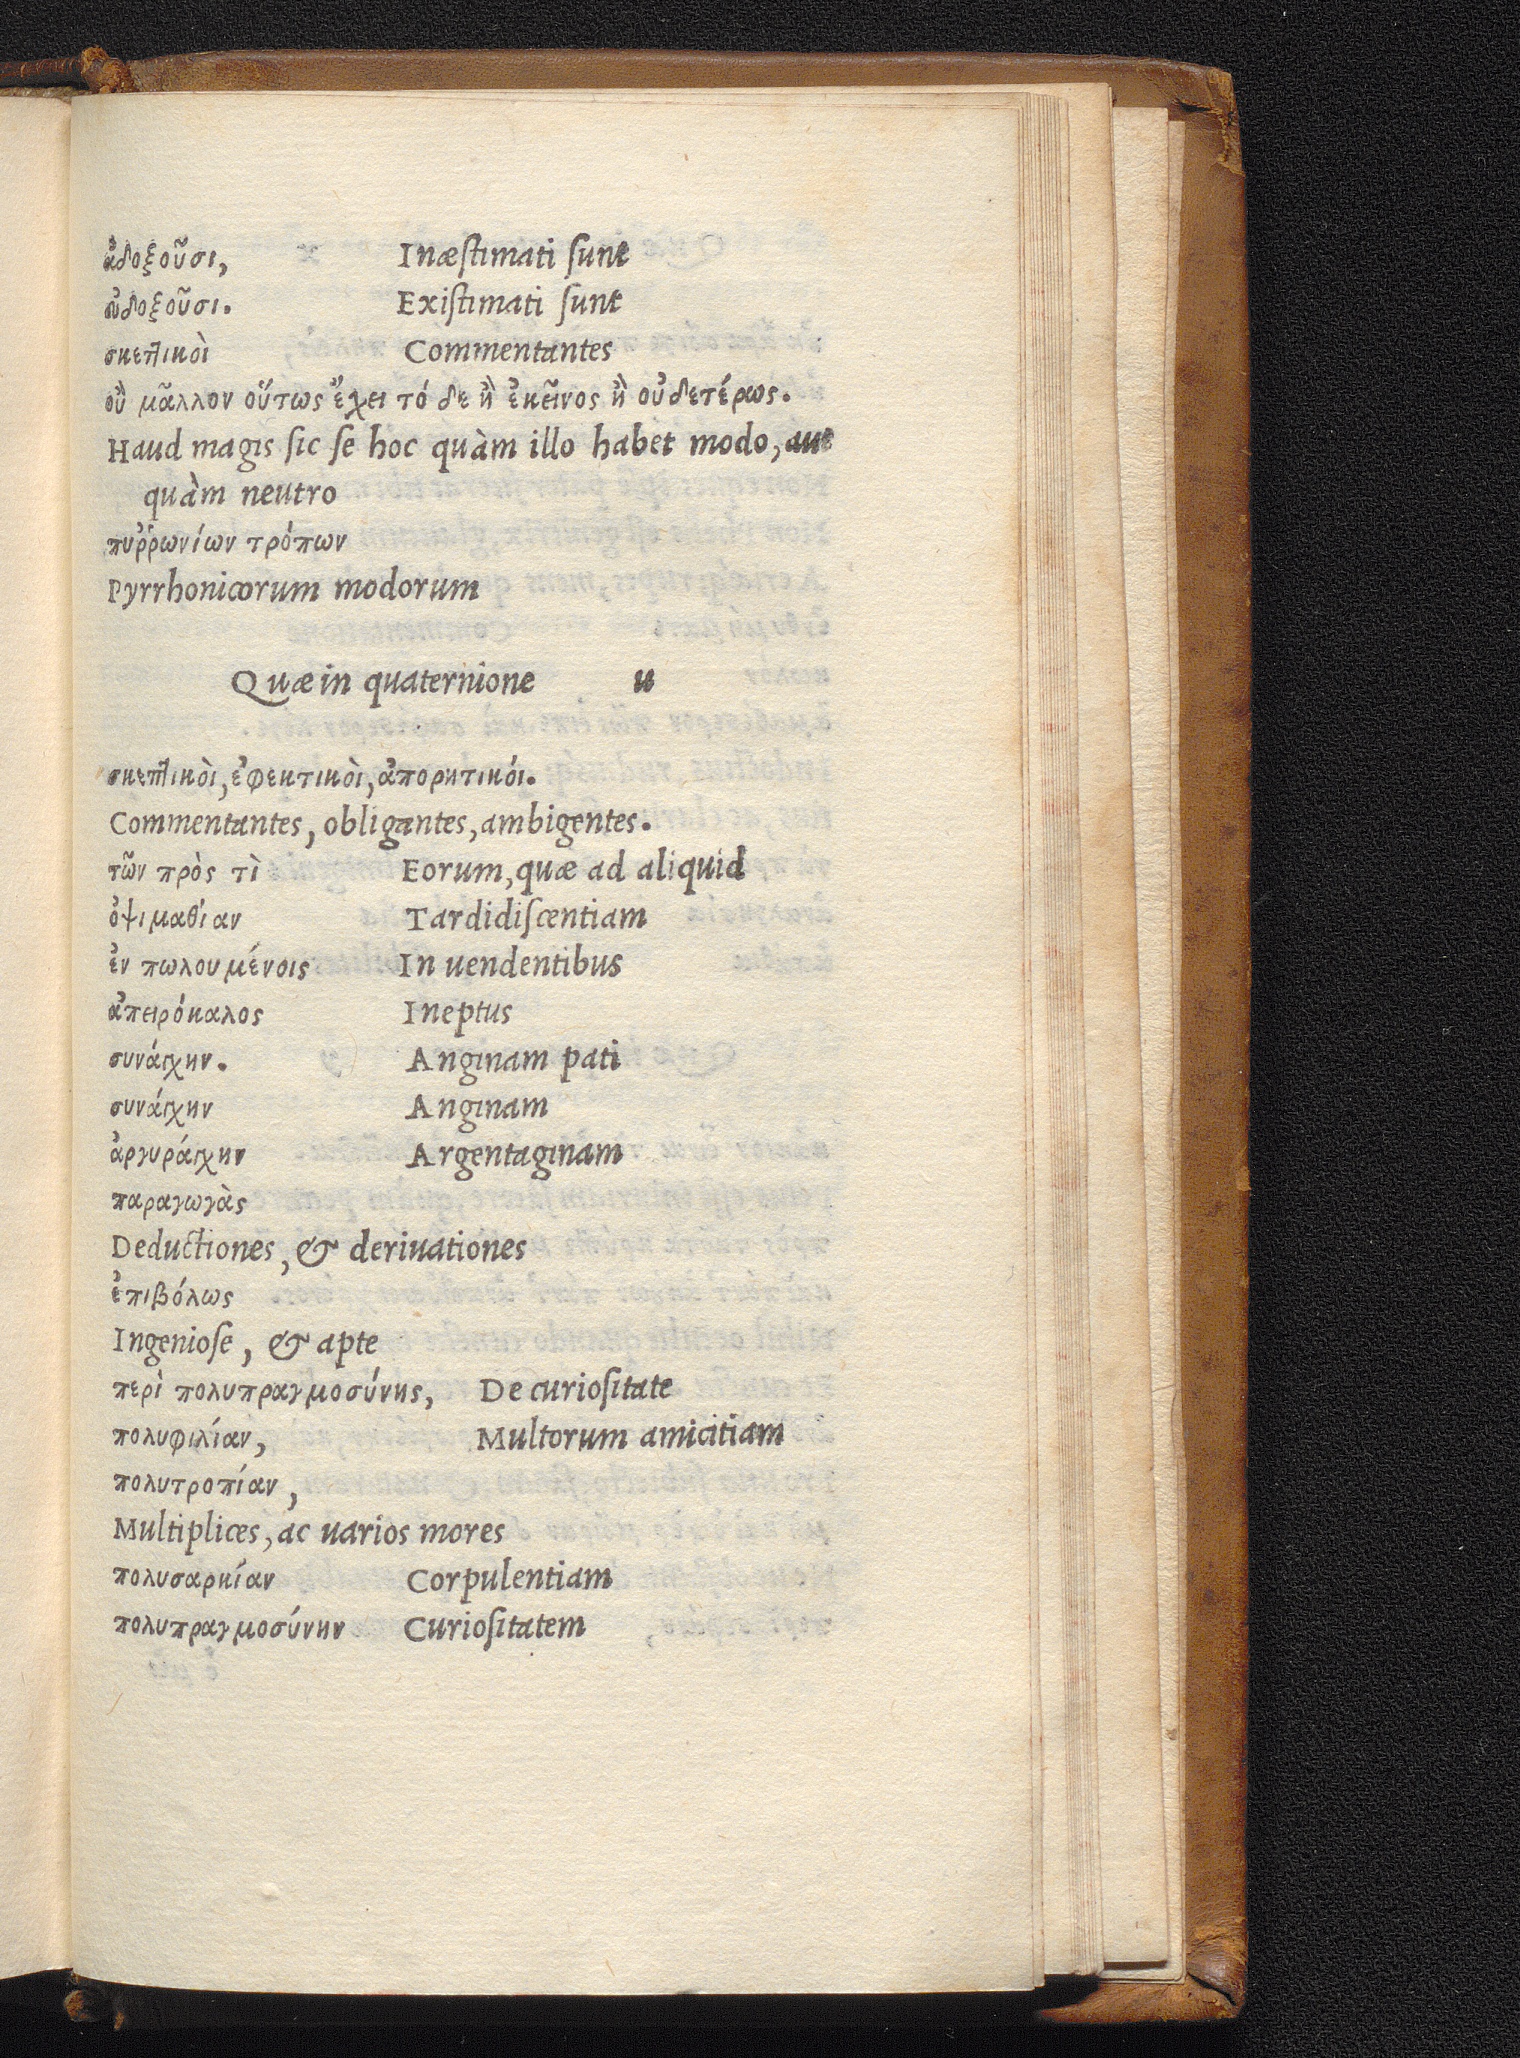 ἀδοξοῦσι, Inæſtimati ſunt
ἐνδοξοῦσι. Exiſtimati ſunt
σκεπτικοὶ Commentantes
οὐ μᾶλλον οὕτως ἔχει τό δε ἢ ἐκεῖνος ἢ οὐδετέρως.
Haud magis ſic ſe hoc quàm illo habet modo, aut
quàm neutro
πυῤῥωνίων τρόπων
Pyrrhonicorum modorum
Quæ in quaternione u
σκεπτικοὶ, ἐφεκτικοὶ, ἀπορητικόι.
Commentantes, obligantes, ambigentes.
τῶν πρὸς τὶ Eorum, quæ ad aliquid
ὀψιμαθίαν Tardidiſcentiam
ἐν πωλουμένοις In uendentibus
ἀπειρόκαλος Ineptus
συνάγχην. Anginam pati
συνάγχην Anginam
ἀργυράγχην Argentaginam
παραγωγὰς
Deductiones, & deriuationes
ἐπιβόλως
Ingenioſe, & apte
περὶ πολυπραγμοσύνης, De curioſitate
πολυφιλίαν, Multorum amicitiam
πολυτροπίαν,
Multiplices, ac uarios mores
πολυσαρκίαν Corpulentiam
πολυπραγμοσύνην Curioſitatem